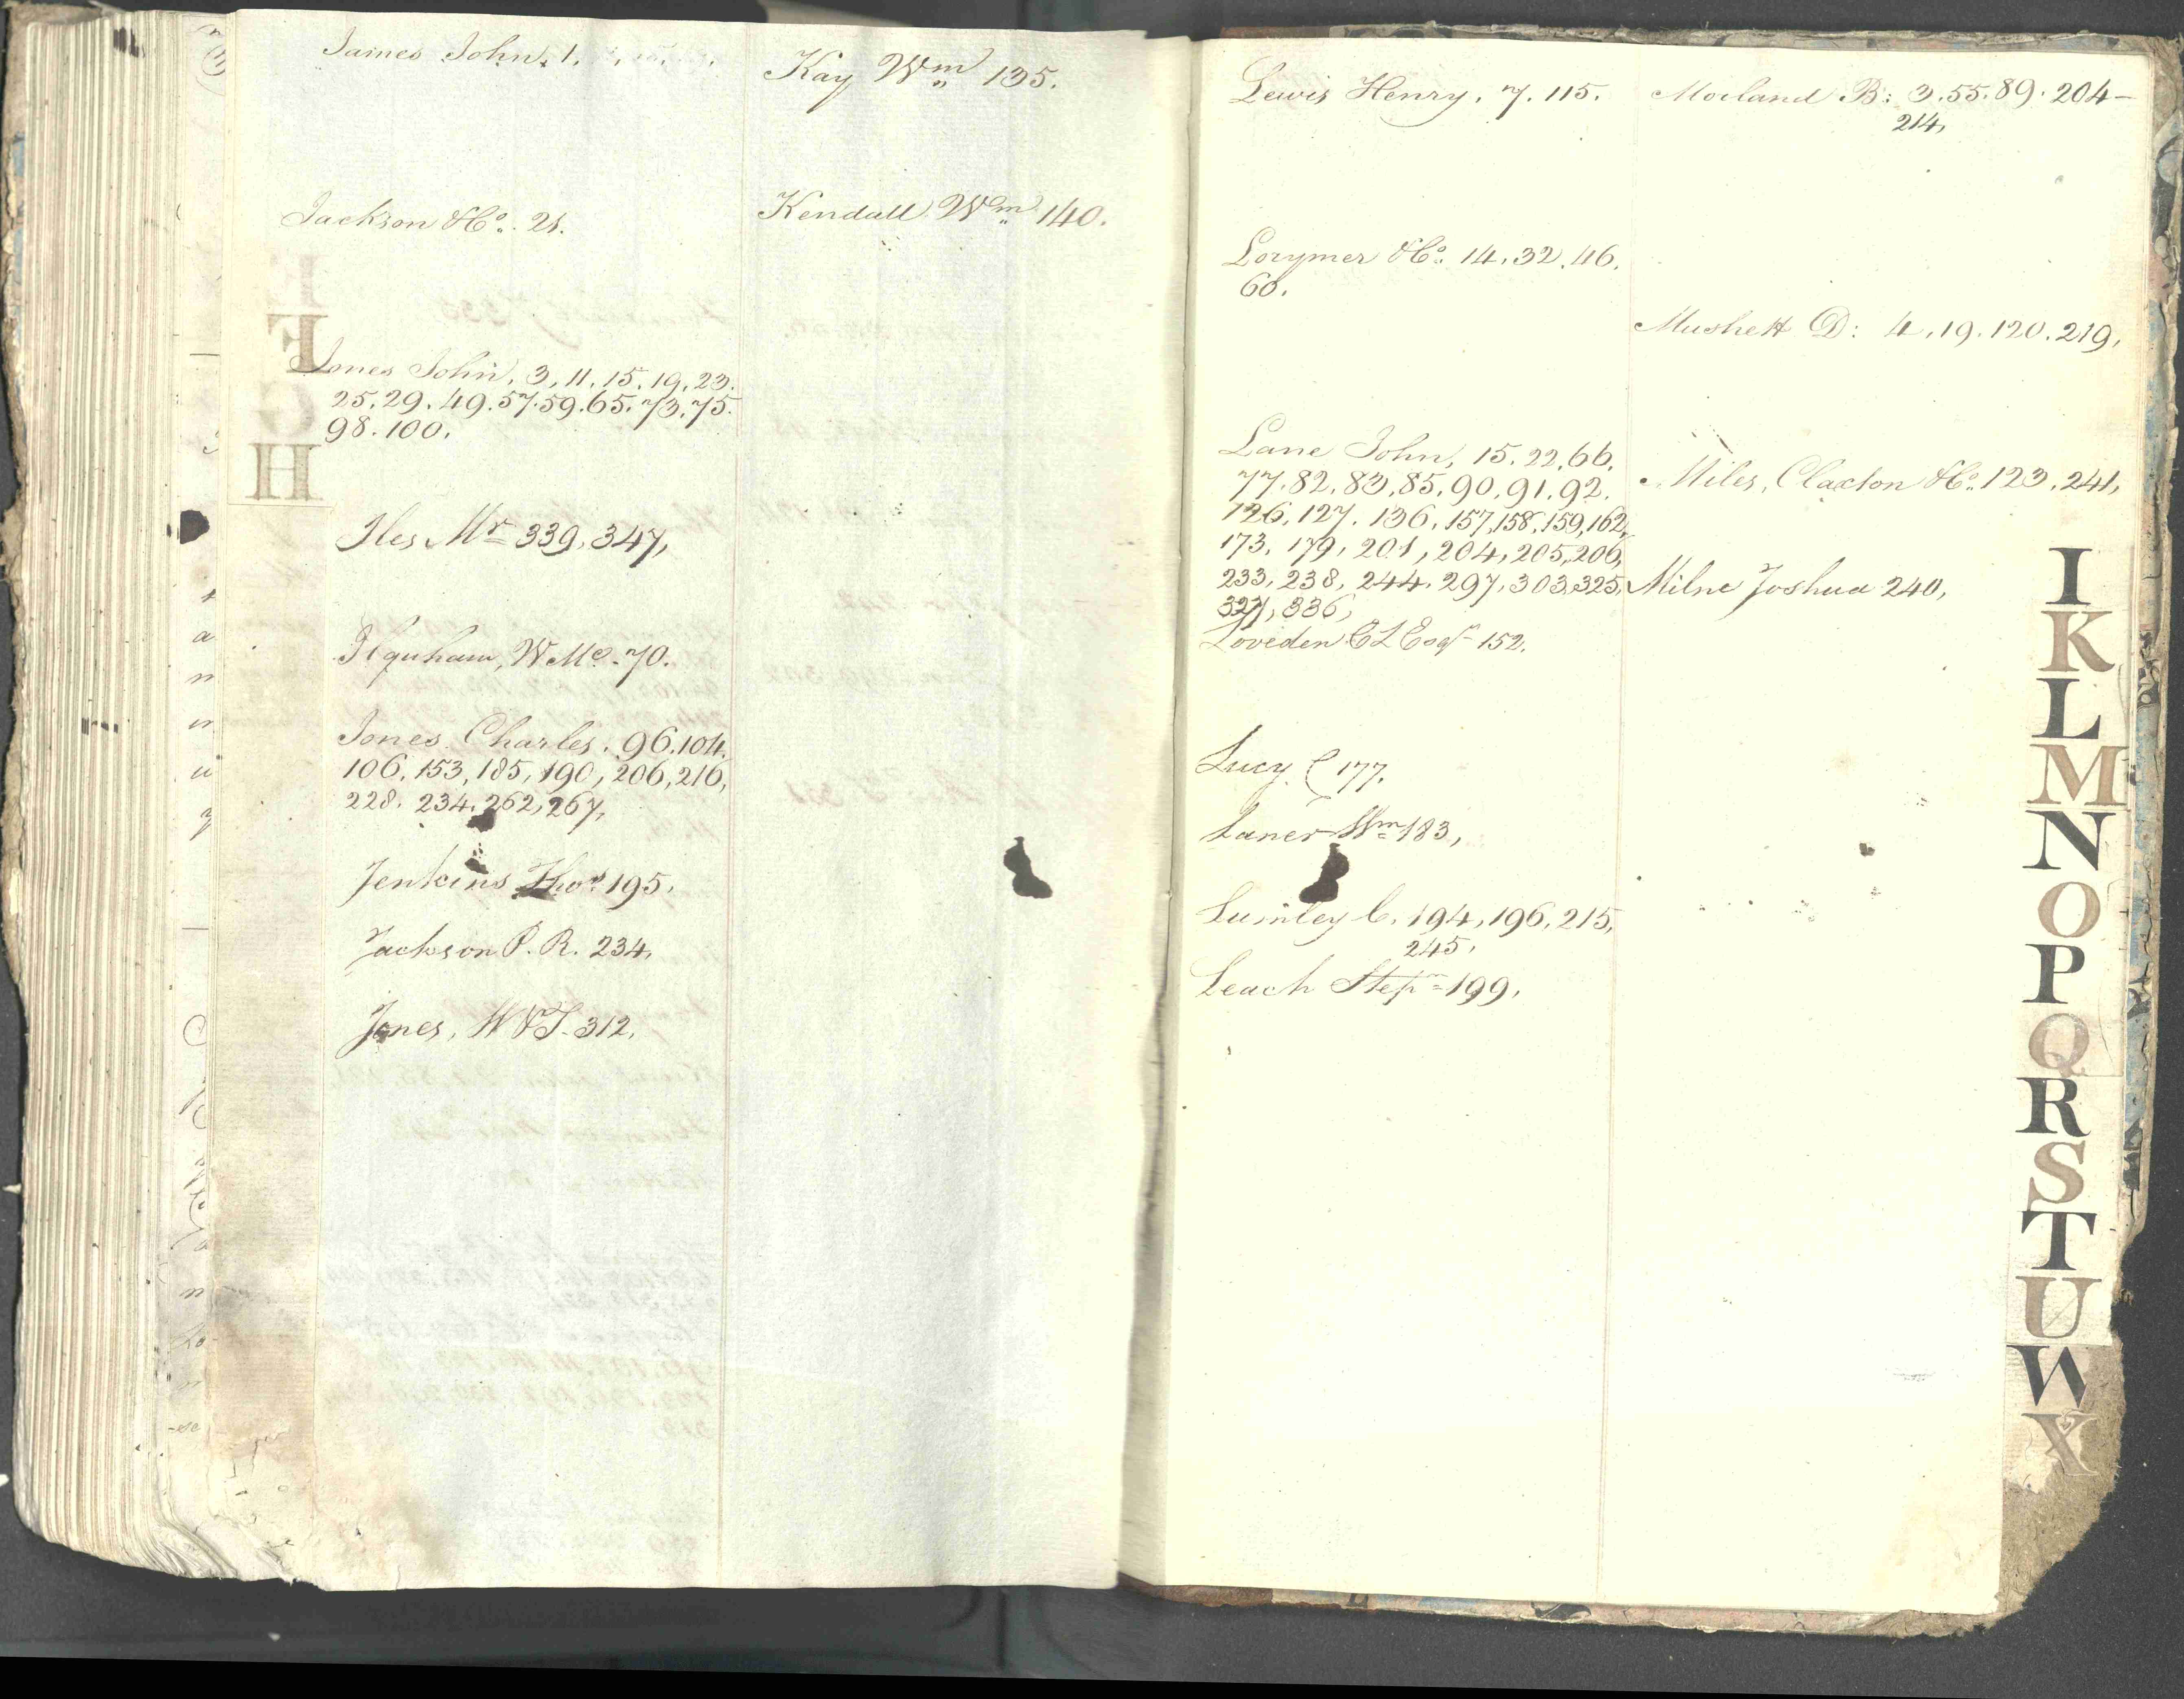 James John, 1.
Jackson & Co. 21.
Jones John, 3, 11. 15. 19. 23.
25. 29. 49. 57. 59. 65. 73. 75.
98. 100.
Iles Mr 339, 347,
70.
Jones Charles. 96. 104.
106, 153, 185, 190, 206, 216,
228. 234. 262, 267,
Jenkins Thos 195.
Jackson P. R. 234,
Jones, W & T. 312,
Kay Wm 135.
Kendall Wm 140.
E
F
G
H
Lewis Henry. 7. 115.
Lorymer & Co. 14. 32. 46.
60.
Lane John, 15. 22. 66.
77. 82. 83. 85. 90. 91. 92.
126, 127. 136. 157, 158, 159, 162,
173, 179, 201, 204, 205, 206,
233, 238, 244. 297, 303, 325,
327, 336,
Loveden E L Esqr 152.
Lucy C 177.
Laner Wm 183,
Lumley C. 194, 196, 215,
245,
Leach Stepn 199,
Morland B: 3. 55. 89. 204-
214,
Mushett D: 4. 19. 120. 219,
Miles, Claxton & Co. 123. 241,
Milne Joshua 240,
I
K
L
M
N
O
P
Q
R
S
T
U
W
X